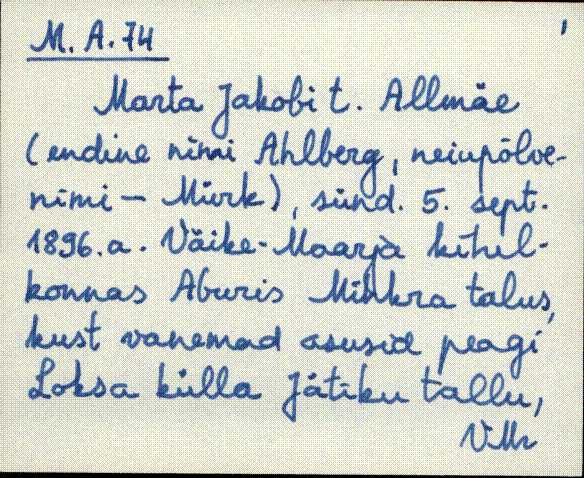 M. A. 74
Marta Jakobi t. Allmäe
(endine nimi Ahlberg, neiupõlve-
nimi — Mürk), sünd. 5. sept.
1896. a. Väike-Maarja kihel-
konnas Aburis Mihkra talus,
kust vanemad asusid peagi
Loksa külla Jätiku tallu,
VMr